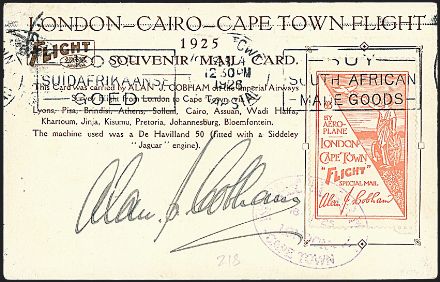 LONDON–CAIRO–CAPE TOWN FLIGHT
1925
SOUVENIR MAIL CARD.
FLIGHT
SUIDAFRIKAANSE
GOED
12 30 PM
1926
BUY
SOUTH AFRICAN
MADE GOODS
This Card was carried by ALAN J. COBHAM on the Imperial Airways
Survey Flight from London to Cape Town
Lyons, Pisa, Brindisi, Athens, Sollum, Cairo, Assuan, Wadi Halfa,
Khartoum, Jinja, Kisumu, Pretoria, Johannesburg, Bloemfontein.
The machine used was a De Havilland 50 (fitted with a Siddeley
"Jaguar" engine).
BY
AERO-
PLANE
LONDON
CAPE TOWN
"FLIGHT"
SPECIAL MAIL
Alan J. Cobham
Alan J. Cobham
CAPE TOWN
218